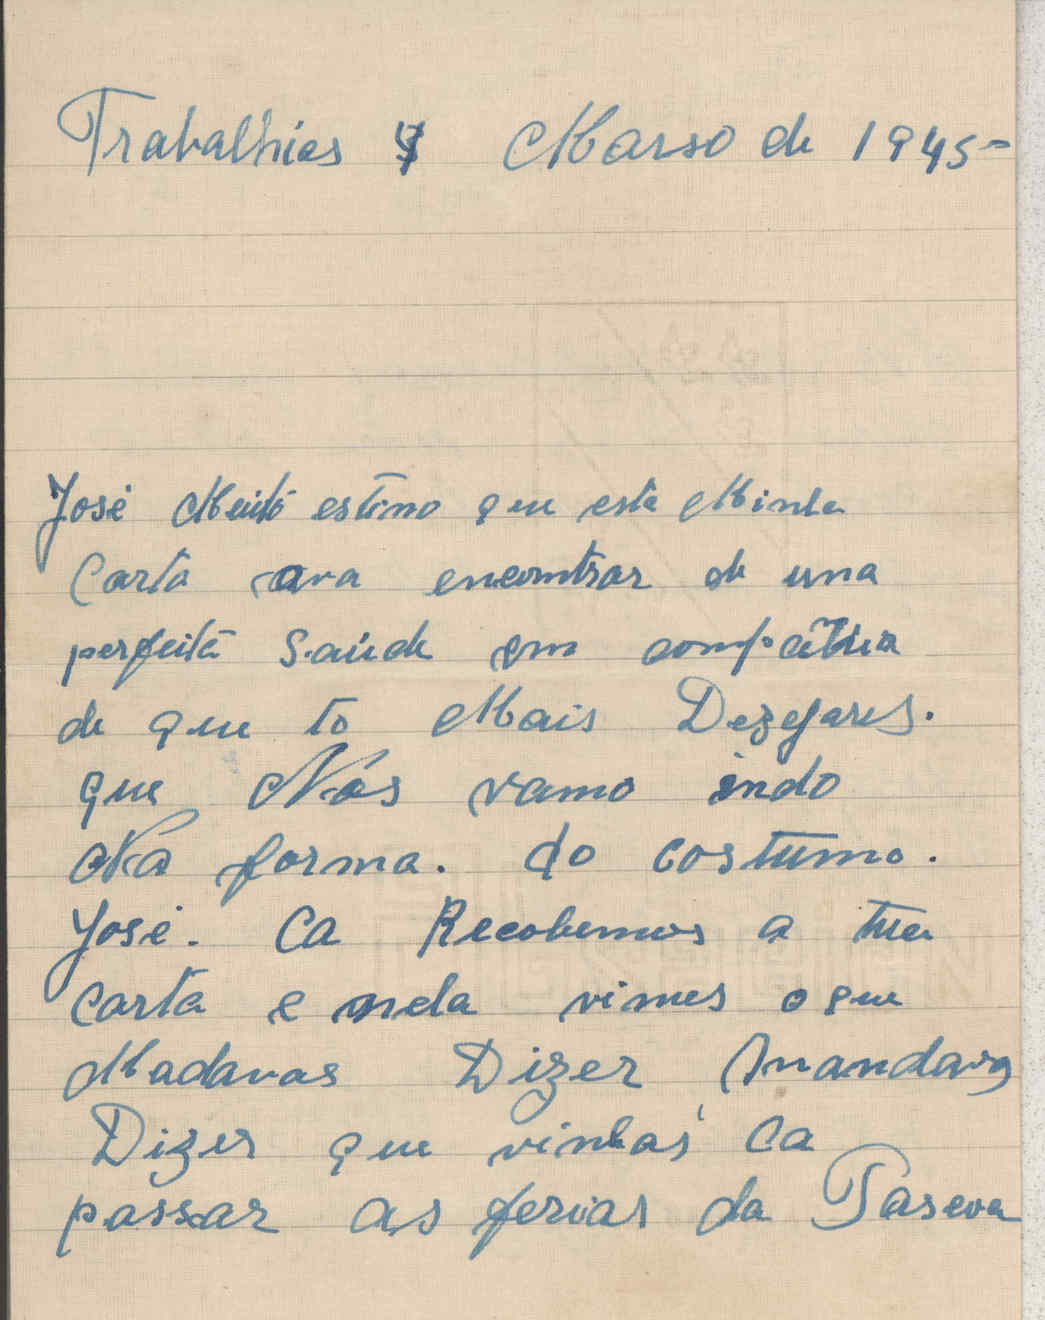 Trabalhias Marso de 1945-
José Muitó estimo que esta Minha
Carta ava encomtrar de una
perfeita Saúde em compatnia
de que to Mais Dezejares.
que Nós vamo indo
Na forma. do costumo.
José. Ca Recebemos a tua
carta e nela vimes o que
Madavas Dizer Mandavas
Dizer que vinhas ca
passar as ferias da Pascva